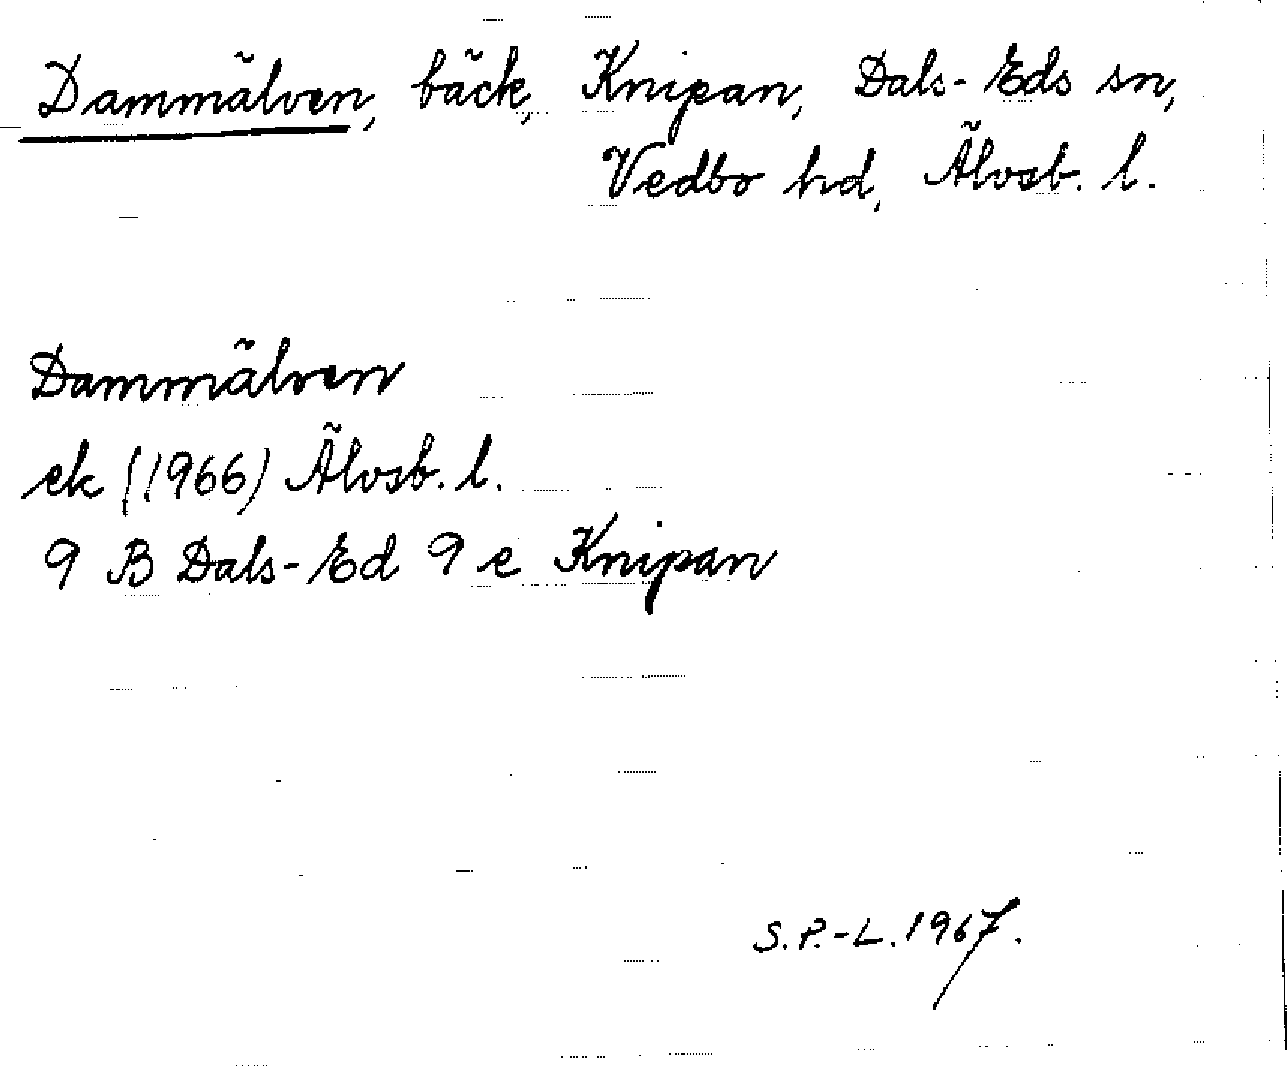 Dammälven, bäck, Knipan, Dals-Eds sn,
Vedbo hd, Älvsb. l.
Dammälven
ek (1966) Älvsb. l.
9 B Dals-Ed 9 e Knipan
S.P.-L. 1967.